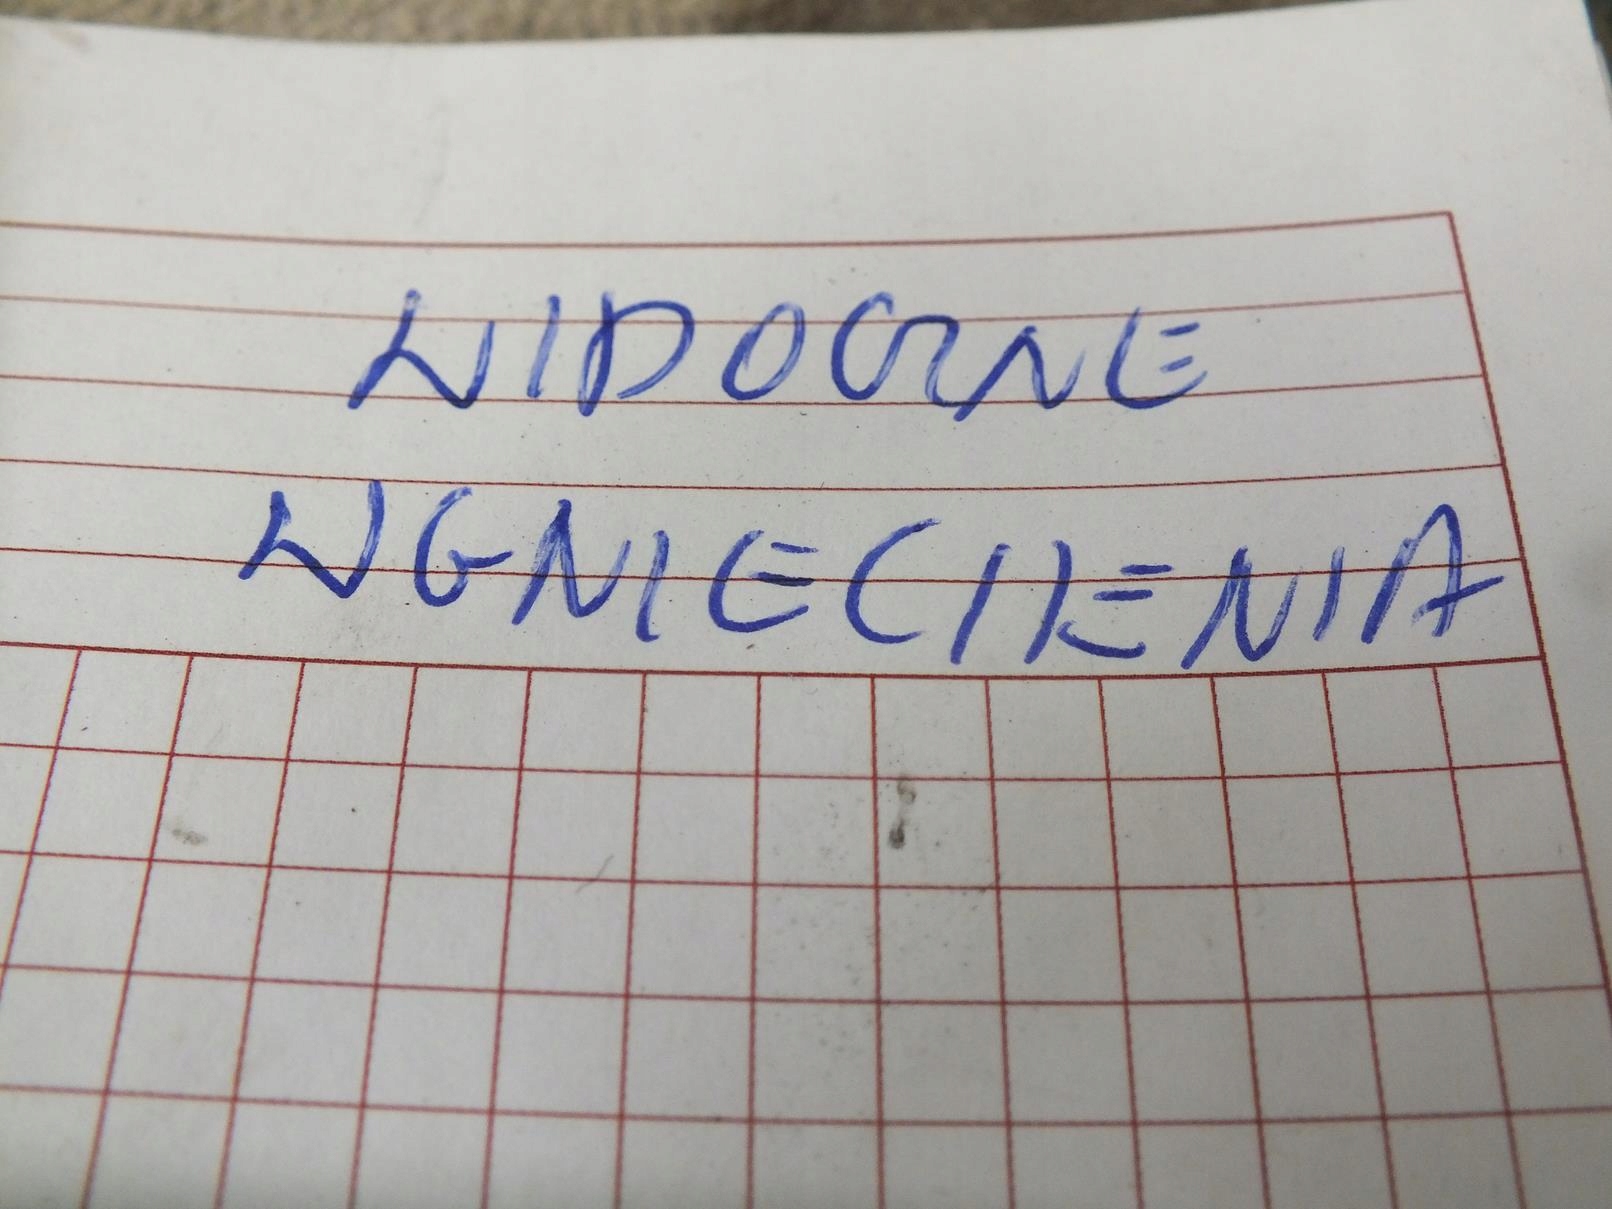 WIDOCZNE
WGNIECIENIA